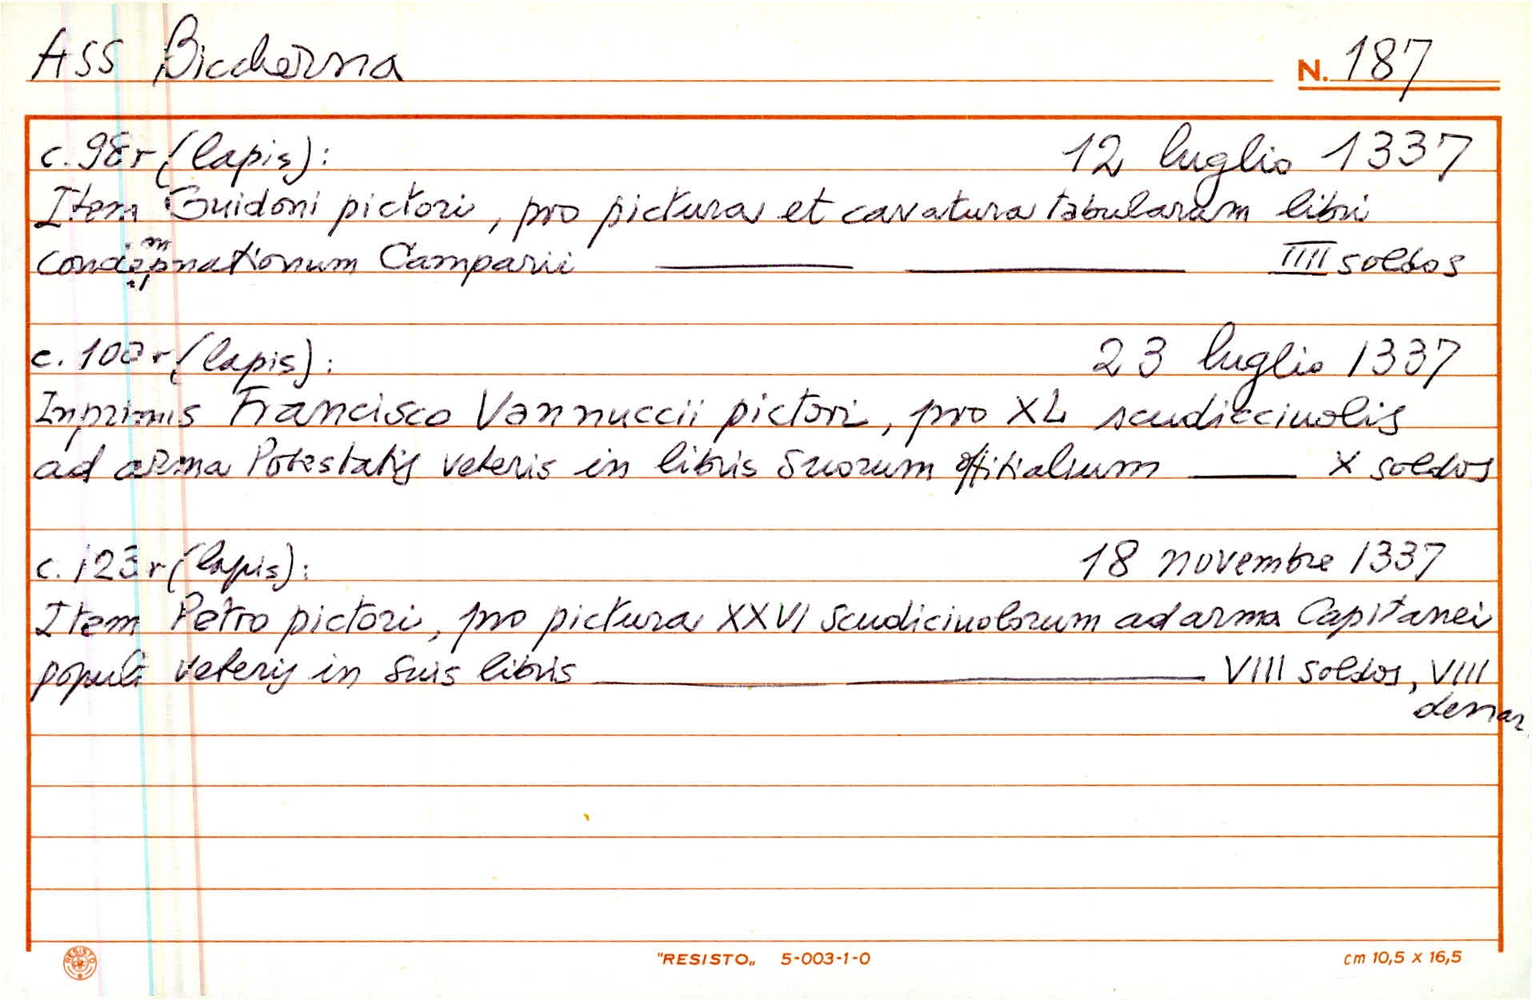 ASS Biccherna N. 187
c. 98r (lapis): 12 luglio 1337
Item Guidoni pictori, pro pictura et cavatura tabularum libri
condempnationum Camparii IIII soldos
c. 100r (lapis): 23 luglio 1337
Inprimis Francisco Vannuccii pictori, pro XL scudicciuolis
ad arma Potestatis veteris in libris suorum offitialium X soldos
c. 123r (lapis): 18 novembre 1337
Item Petro pictori, pro pictura XXVI scudiciuolorum ad arma Capitanei
populi veteris in suis libris VIII soldos, VIII
denar.
RESISTO
"RESISTO„ 5-003-1-0 cm 10,5 x 16,5